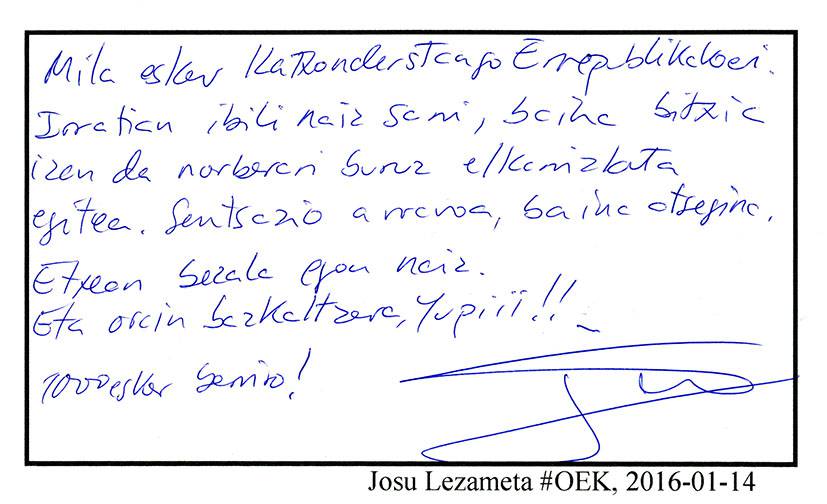 Mila esker Katxonderstaago Errepublikakoei.
Irratian ibili naiz sarri, baina bitxia
izan da norberari buruz elkarrizketa
egitea. Sentsazio arraroa, baina atsegina.
Etxean bezala egon naiz.
Eta orain bazkaltzera, Yupiii!!
1000 esker berriro!
Josu Lezameta #OEK, 2016-01-14